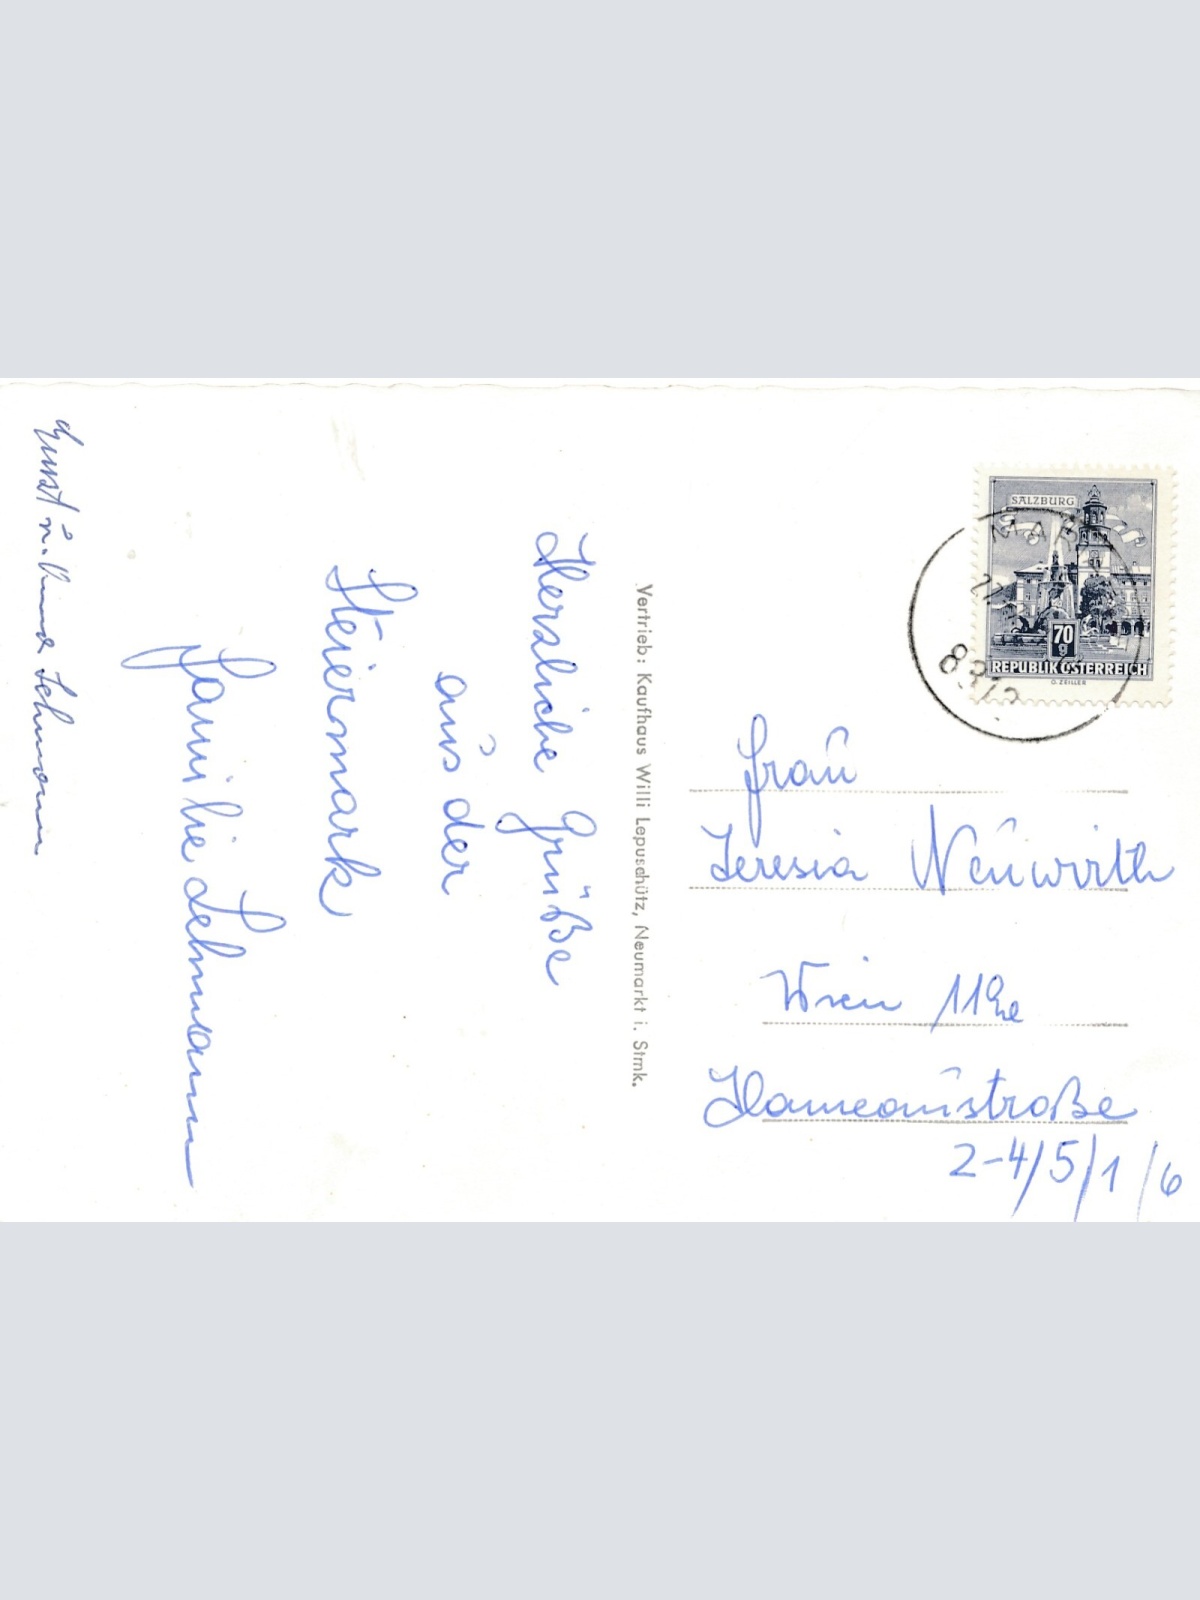 Herzliche Grüße
aus der
Steiermark
Familie Lehmann
Vertrieb: Kaufhaus Willi Lepuschütz, Neumarkt i. Stmk.
SALZBURG
70
g
REPUBLIK ÖSTERREICH
O. ZEILLER
Frau
Teresia Neuwirth
Wien
2-4/5/1/6